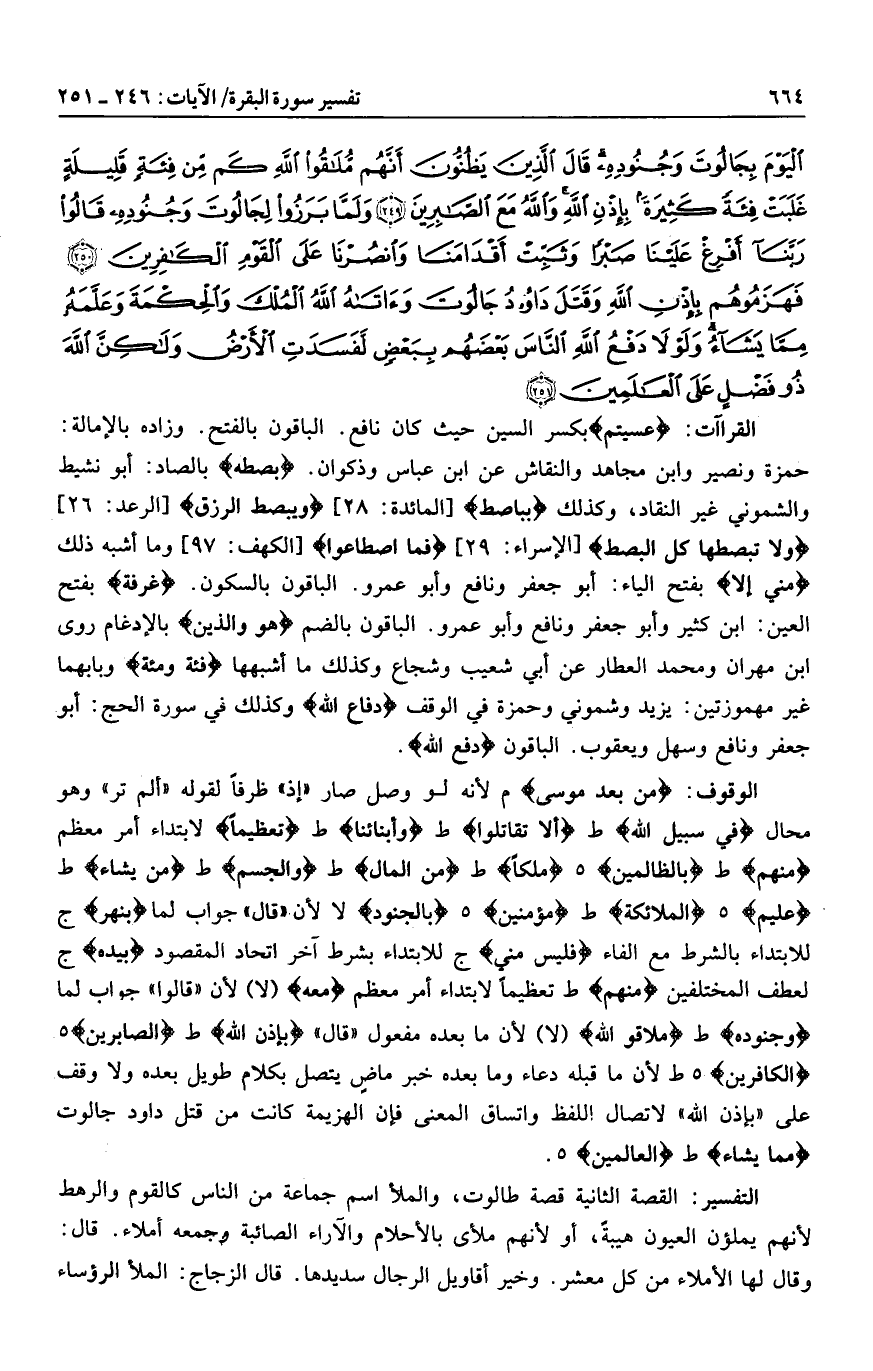 ٦٦٤ تفسير سورة البقرة/ الآيات: ٢٤٦ ـ ٢٥١
ٱلْيَوْمَ بِجَالُوتَ وَجُنُودِهِۦۚ قَالَ ٱلَّذِينَ يَظُنُّونَ أَنَّهُم مُّلَٰقُوا۟ ٱللَّهِ كَم مِّن فِئَةٍ قَلِيلَةٍ
غَلَبَتْ فِئَةً كَثِيرَةًۢ بِإِذْنِ ٱللَّهِۗ وَٱللَّهُ مَعَ ٱلصَّٰبِرِينَ ﴿٢٤٩﴾ وَلَمَّا بَرَزُوا۟ لِجَالُوتَ وَجُنُودِهِۦ قَالُوا۟
رَبَّنَآ أَفْرِغْ عَلَيْنَا صَبْرًا وَثَبِّتْ أَقْدَامَنَا وَٱنصُرْنَا عَلَى ٱلْقَوْمِ ٱلْكَٰفِرِينَ ﴿٢٥٠﴾
فَهَزَمُوهُم بِإِذْنِ ٱللَّهِ وَقَتَلَ دَاوُۥدُ جَالُوتَ وَءَاتَىٰهُ ٱللَّهُ ٱلْمُلْكَ وَٱلْحِكْمَةَ وَعَلَّمَهُۥ
مِمَّا يَشَآءُۗ وَلَوْلَا دَفْعُ ٱللَّهِ ٱلنَّاسَ بَعْضَهُم بِبَعْضٍ لَّفَسَدَتِ ٱلْأَرْضُ وَلَٰكِنَّ ٱللَّهَ
ذُو فَضْلٍ عَلَى ٱلْعَٰلَمِينَ ﴿٢٥١﴾
القراآت: ﴿عسيتم﴾بكسر السين حيث كان نافع. الباقون بالفتح. وزاده بالإمالة:
حمزة ونصير وابن مجاهد والنقاش عن ابن عباس وذكوان. ﴿بصطه﴾ بالصاد: أبو نشيط
والشموني غير النقاد، وكذلك ﴿بباصط﴾ [المائدة: ٢٨] ﴿ويبصط الرزق﴾ [الرعد: ٢٦]
﴿ولا تبصطها كل البصط﴾ [الإسراء: ٢٩] ﴿فما اصطاعوا﴾ [الكهف: ٩٧] وما أشبه ذلك
﴿مني إلا﴾ بفتح الياء: أبو جعفر ونافع وأبو عمرو. الباقون بالسكون. ﴿غرفة﴾ بفتح
العين: ابن كثير وأبو جعفر ونافع وأبو عمرو. الباقون بالضم ﴿هو والذين﴾ بالإدغام روى
ابن مهران ومحمد العطار عن أبي شعيب وشجاع وكذلك ما أشبهها ﴿فئة ومئة﴾ وبابهما
غير مهموزتين: يزيد وشموني وحمزة في الوقف ﴿دفاع الله﴾ وكذلك في سورة الحج: أبو
جعفر ونافع وسهل ويعقوب. الباقون ﴿دفع الله﴾.
الوقوف: ﴿من بعد موسى﴾ م لأنه لو وصل صار «إذ» ظرفاً لقوله «ألم تر» وهو
محال ﴿في سبيل الله﴾ ط ﴿ألا تقاتلوا﴾ ط ﴿وأبنائنا﴾ ط ﴿تعظيماً﴾ لابتداء أمر معظم
﴿منهم﴾ ط ﴿بالظالمين﴾ ٥ ﴿ملكاً﴾ ط ﴿من المال﴾ ط ﴿والجسم﴾ ط ﴿من يشاء﴾ ط
﴿عليم﴾ ٥ ﴿الملائكة﴾ ط ﴿مؤمنين﴾ ٥ ﴿بالجنود﴾ لا لأن «قال» جواب لما ﴿بنهر﴾ ج
للابتداء بالشرط مع الفاء ﴿فليس مني﴾ ج للابتداء بشرط آخر اتحاد المقصود ﴿بيده﴾ ج
لعطف المختلفين ﴿منهم﴾ ط تعظيماً لابتداء أمر معظم ﴿معه﴾ (لا) لأن «قالوا» جواب لما
﴿وجنوده﴾ ط ﴿ملاقو الله﴾ (لا) لأن ما بعده مفعول «قال» ﴿بإذن الله﴾ ط ﴿الصابرين﴾٥
﴿الكافرين﴾ ٥ ط لأن ما قبله دعاء وما بعده خبر ماضٍ يتصل بكلام طويل بعده ولا وقف
على «بإذن الله» لاتصال اللفظ واتساق المعنى فإن الهزيمة كانت من قتل داود جالوت
﴿مما يشاء﴾ ط ﴿العالمين﴾ ٥.
التفسير: القصة الثانية قصة طالوت، والملأ اسم جماعة من الناس كالقوم والرهط
لأنهم يملؤن العيون هيبةً، أو لأنهم ملأى بالأحلام والآراء الصائبة وجمعه أملاء. قال:
وقال لها الأملاء من كل معشر. وخير أقاويل الرجال سديدها. قال الزجاج: الملأ الرؤساء